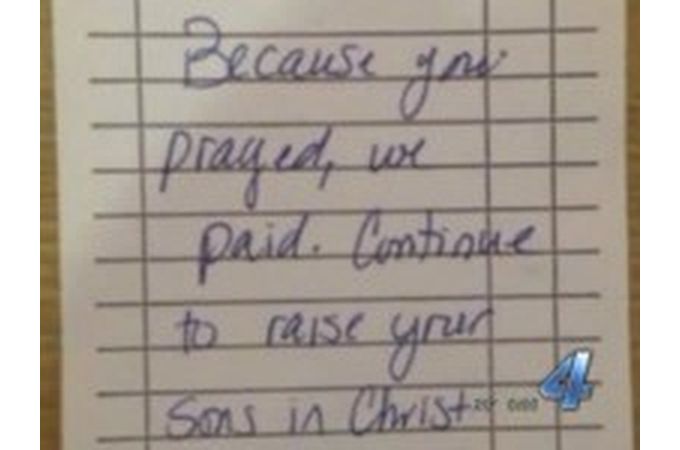 Because you
prayed, we
paid. Continue
to raise your
sons in Christ
4